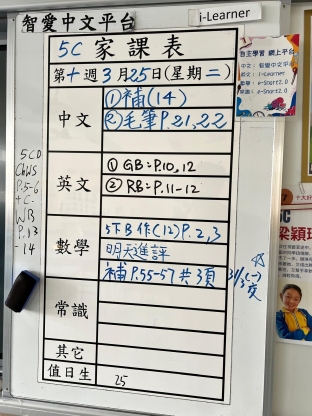 智愛中文平台
i-Learner
5C 家課表
第十週3月25日(星期二)
中文
①補(14)
②毛筆P.21,22
英文
① GB:P.10,12
② RB:P.11-12
數學
5下B作(12)P.2,3
明天進評
補P.55-57共3頁
31/3(一)交
常識
其它
值日生
25
5CD
Ch WS
P.5-6
+C.
WB
P.13
-14
自主學習 網上平台
中文: 智愛中文平台
英文: i-Learner
數學: e-Smart2.0
常識: e-Smart2.0
十大好
梁穎